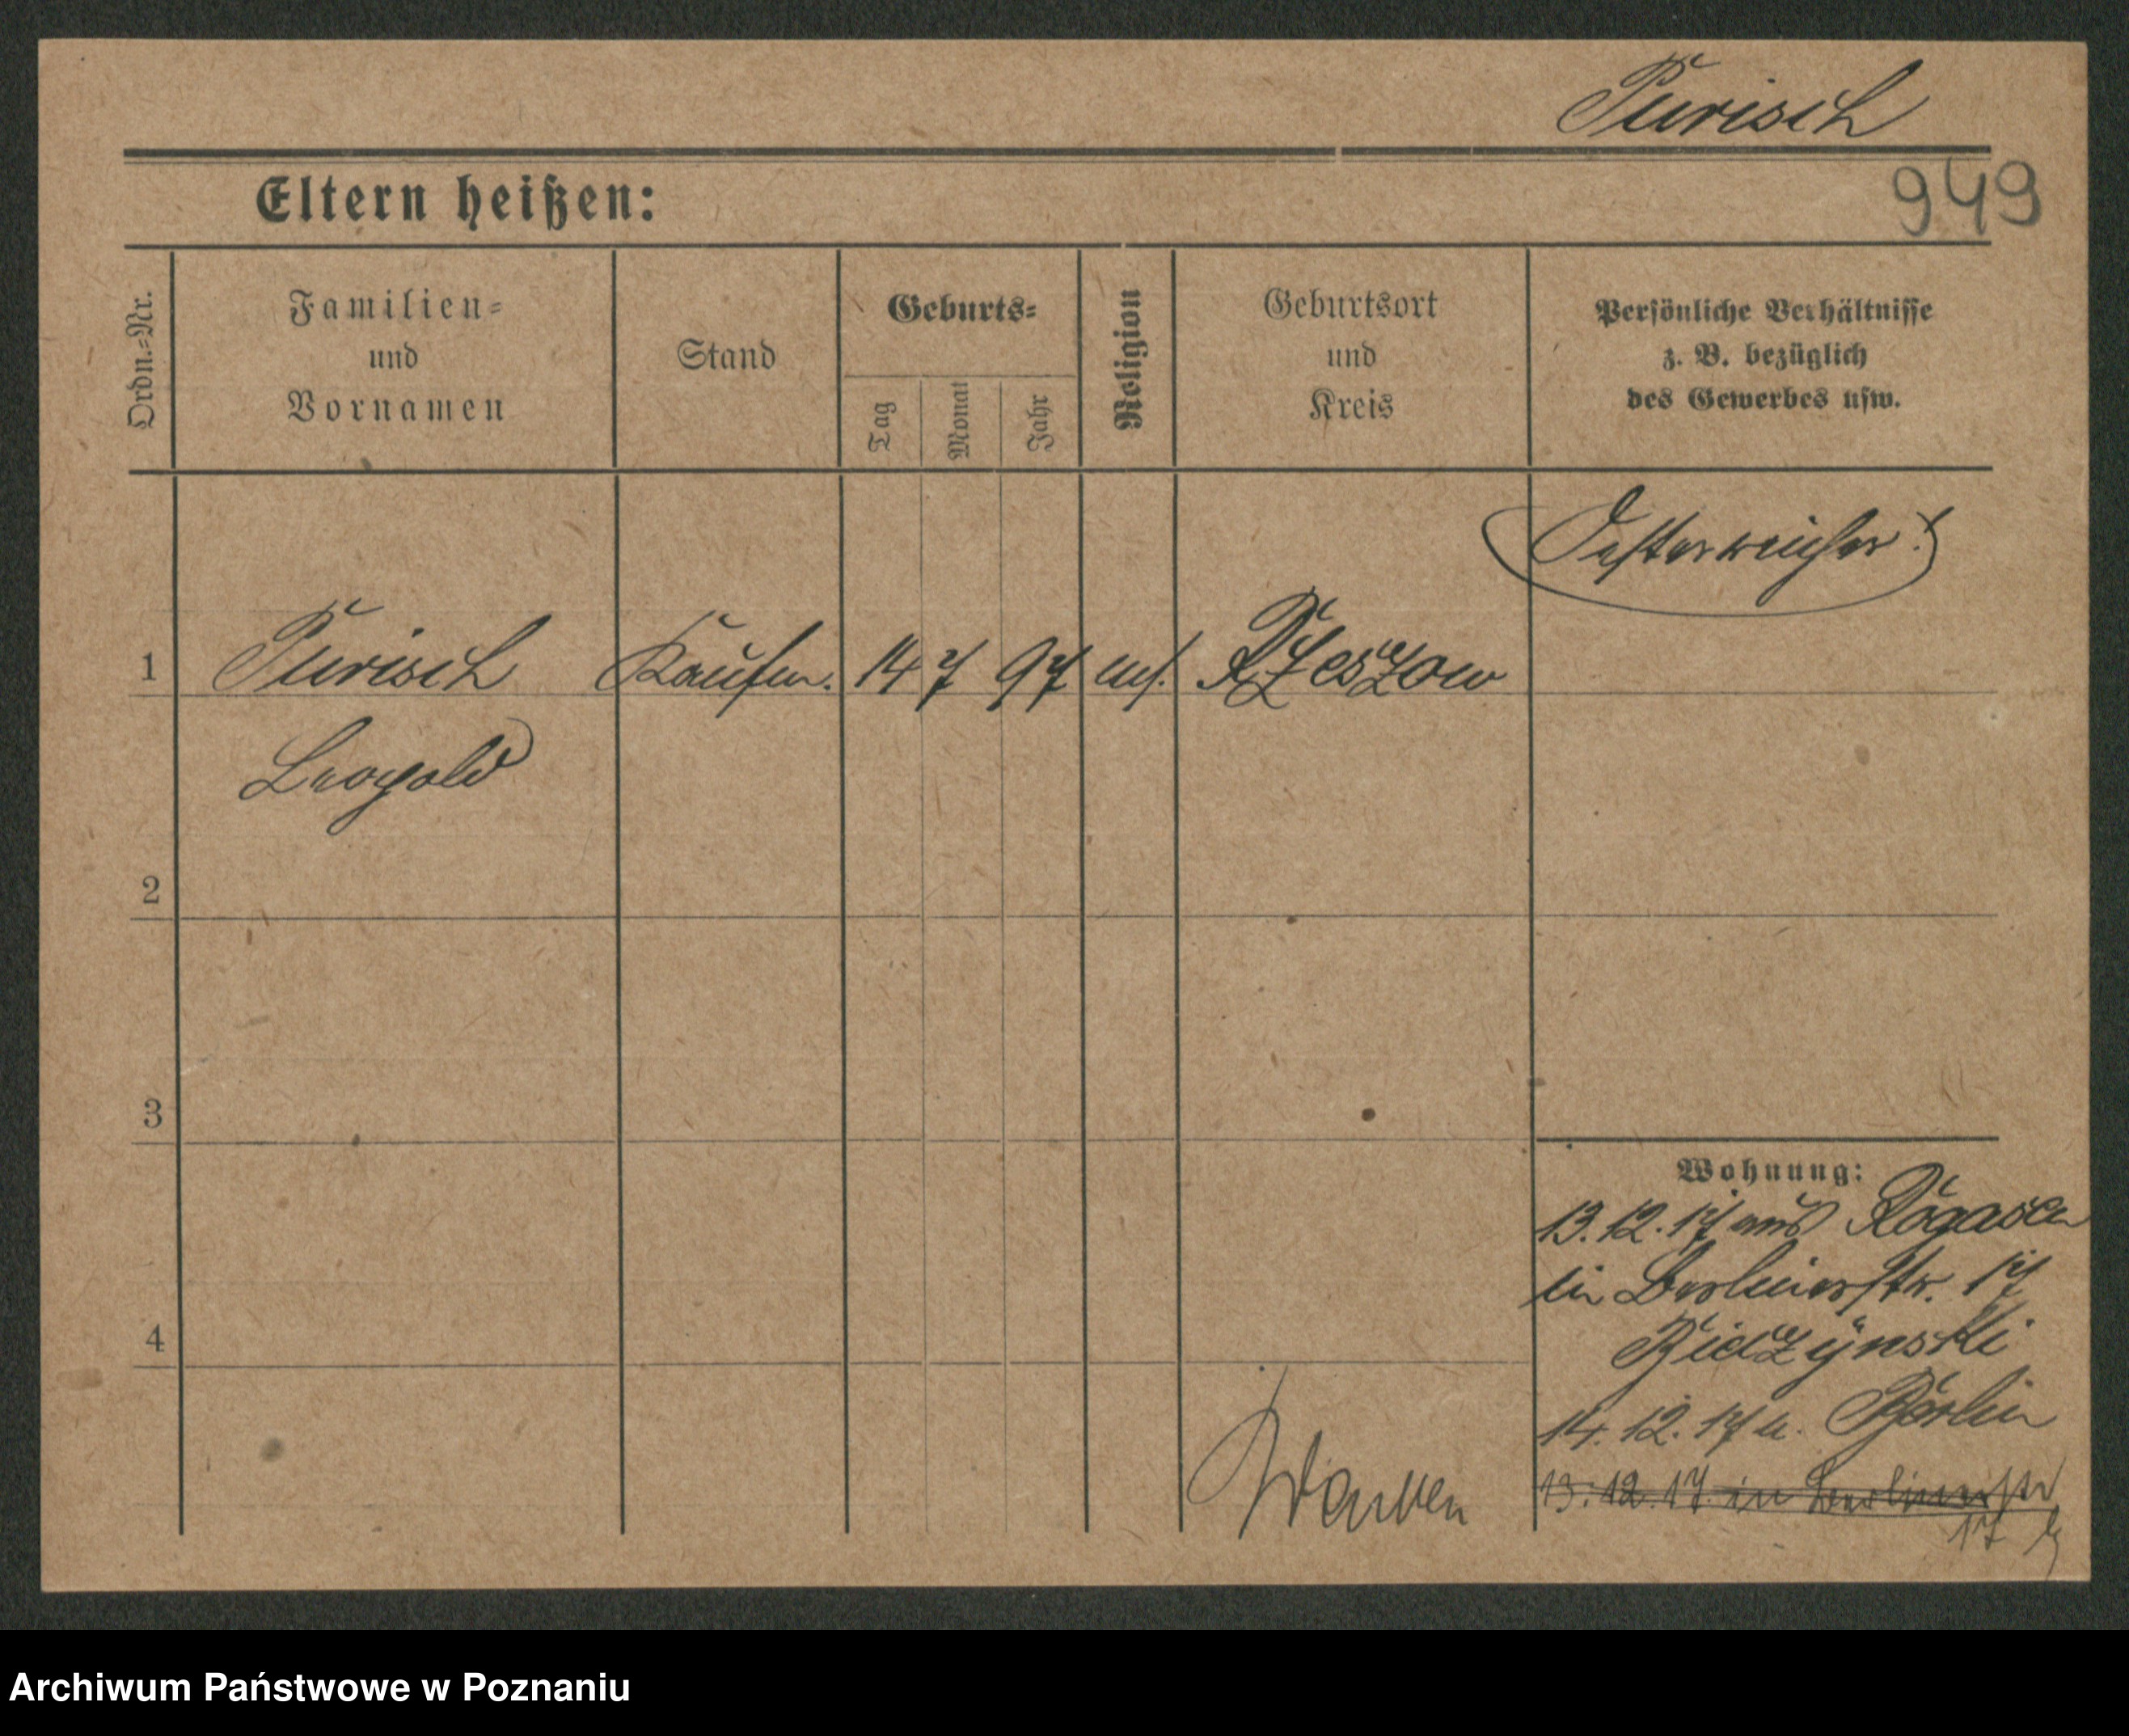 Purisch
949
Eltern heißen:
Ordn.-Nr.
Familien- und Vornamen
Stand
Geburts-
Tag
Monat
Jahr
Religion
Geburtsort und Kreis
Persönliche Verhältnisse z. B. bezüglich des Gewerbes usw.
Oesterreicher!
1 Purisch Kaufm. 14 7 97 Rzeszow
Leopold
2
3
4
Wohnung:
13.12.17 aus Rogasen
in Berlinerstr. 17
14.12.17 n. Berlin
13.12.17 in Berlinerstr
17
Archiwum Państwowe w Poznaniu